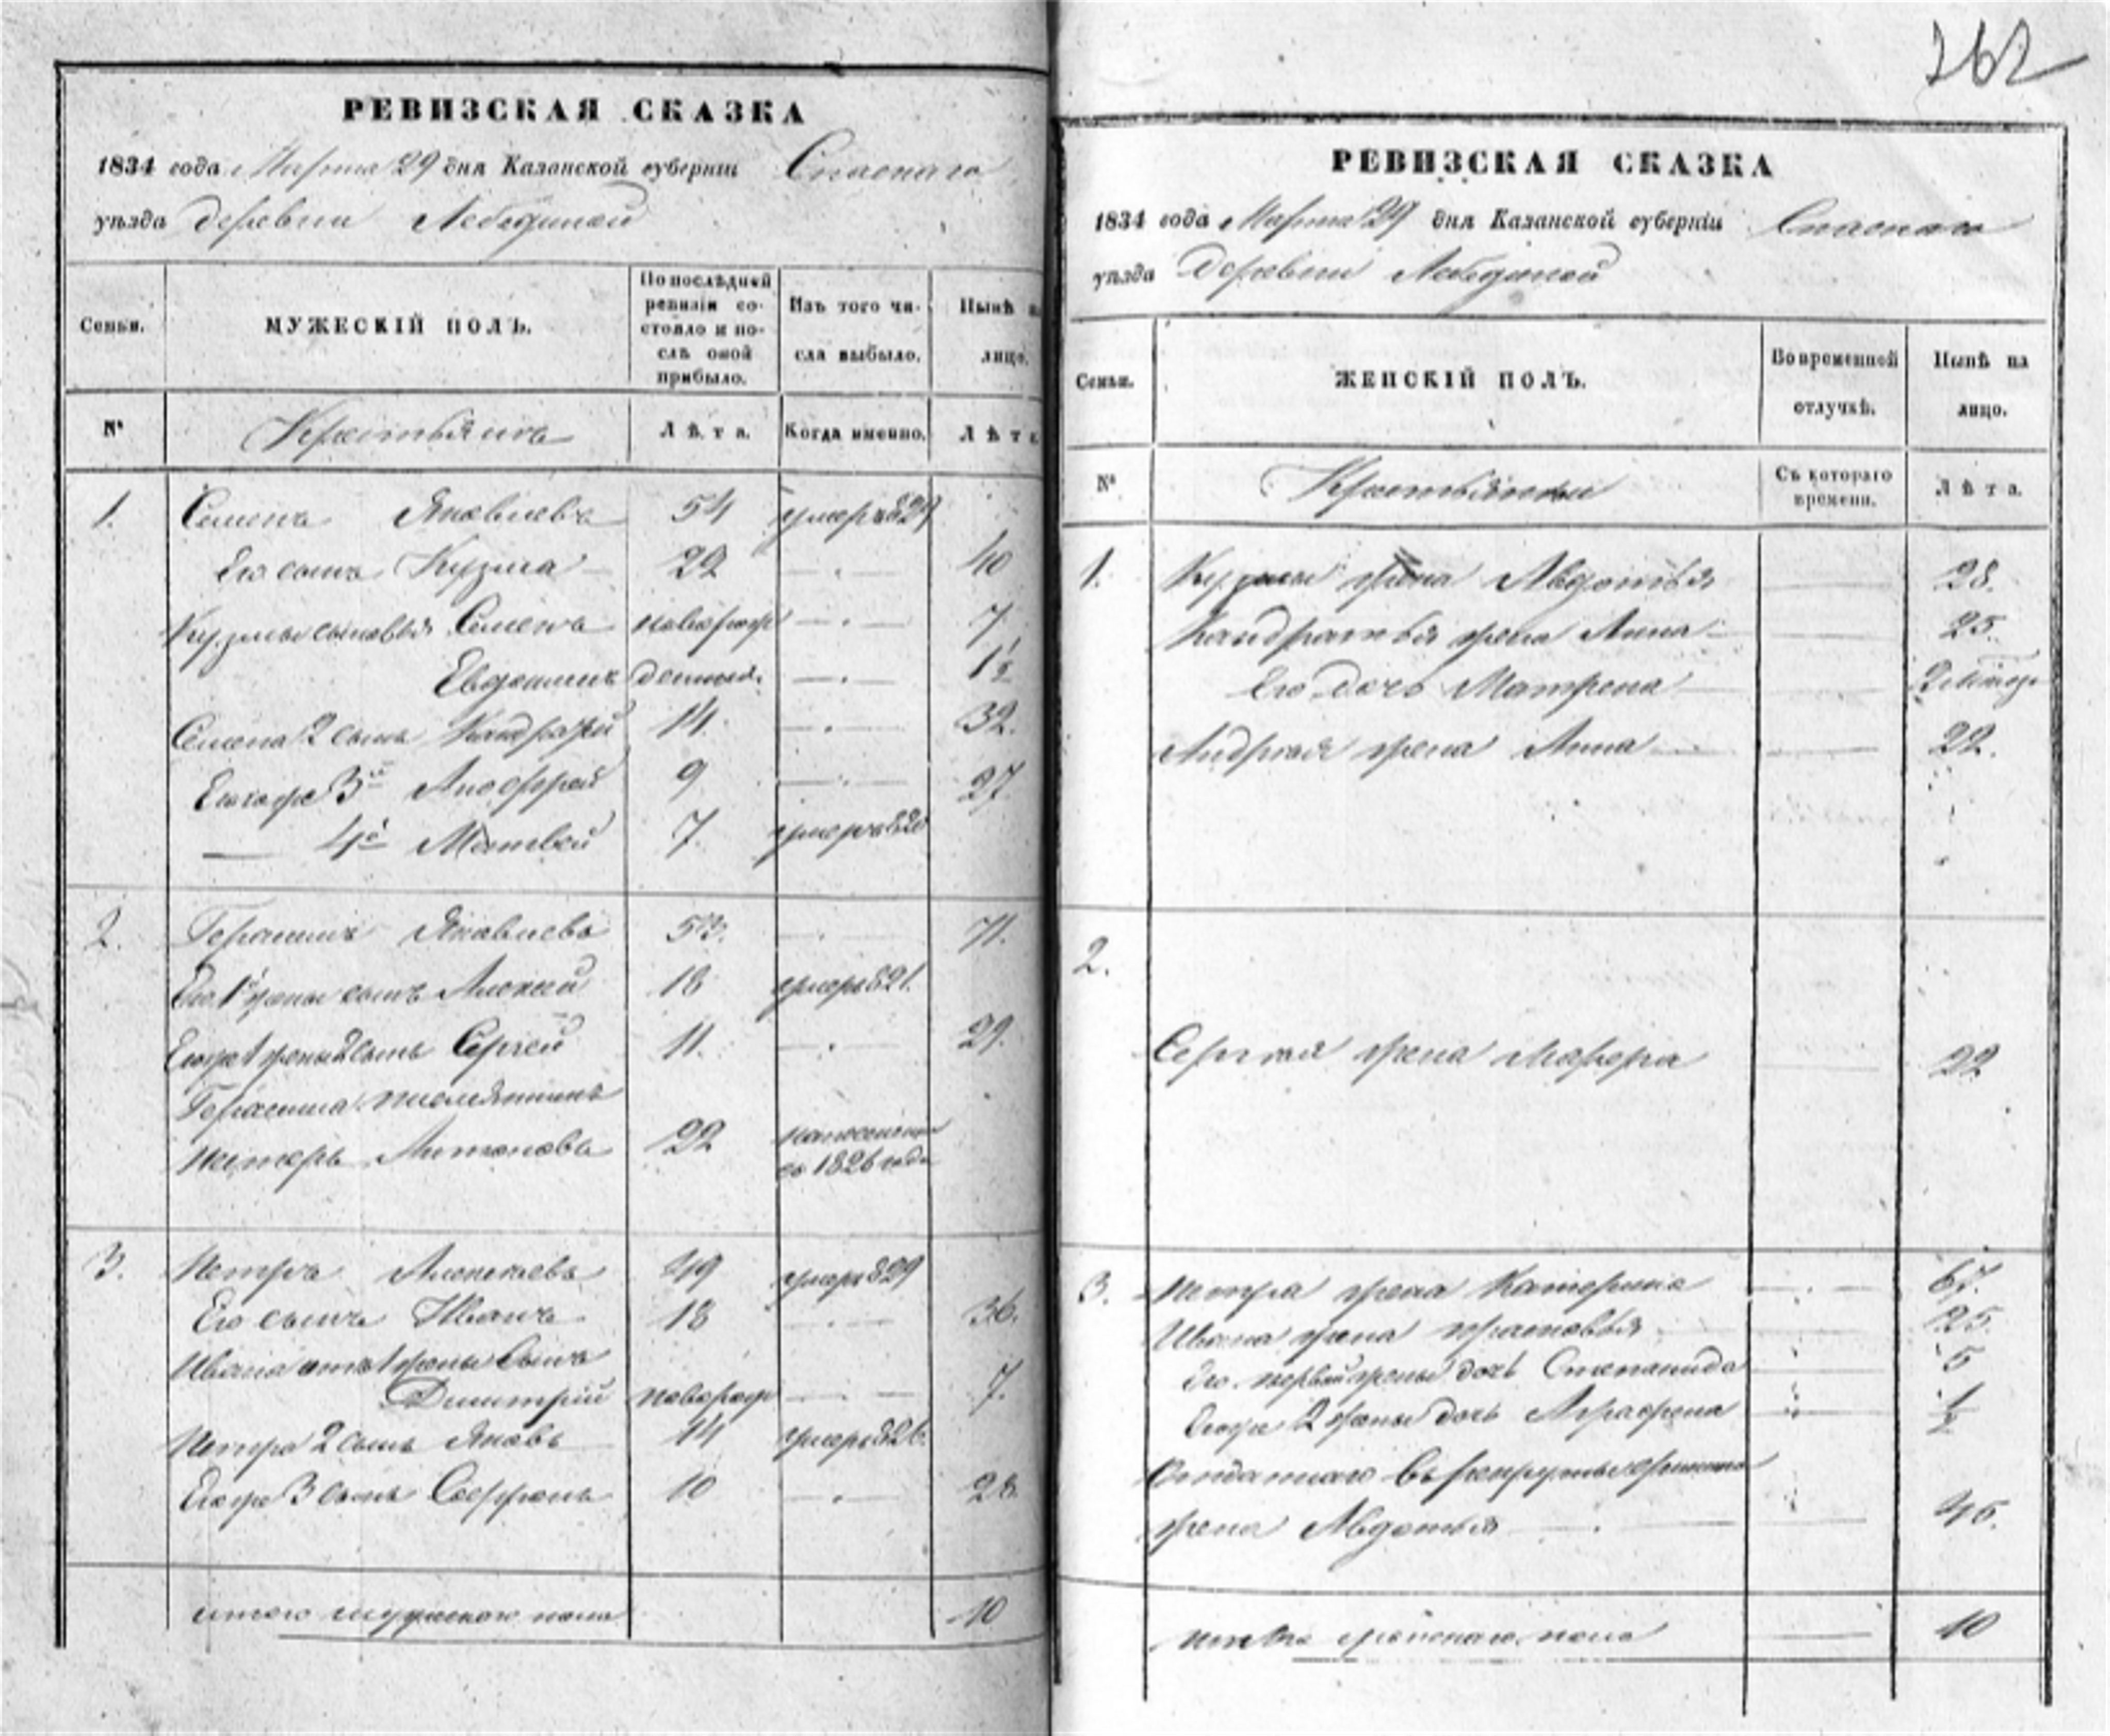 262
РЕВИЗСКАЯ СКАЗКА
1834 года Марта 29 дня Казанской губерніи Спаскаго
уѣзда деревни Лебединой
Семьи. МУЖЕСКІЙ ПОЛЪ. По послѣдней ревизіи состояло и послѣ оной прибыло. Изъ того числа выбыло. Нынѣ на лицо.
№ Крестьянъ Лѣта. Когда именно. Лѣта
1. Семенъ Яковлевъ 54 умеръ 829
Его сынъ Кузма 22 40
Кузмы сыновья Семенъ новорож 7
Евдокимъ денныя 1½
Семена 2 сынъ Кандратій 14. 32.
Его же 3й 9 27.
4й Матвей 7. умеръ
2. Герасимъ Яковлевъ 53. 71.
Его 1 жены сынъ Алексей 18 умеръ 821.
Его же 1 жены 2 сынъ Сергей 11. 29.
Герасима племянникъ
Питеръ Антоновъ 22 на поселении
со 1826 года
3. Петръ Алексеевъ 49 умеръ 829
Его сынъ Иванъ 18 36.
Ивана отъ 1 жены сынъ
Димитрій новорож 7.
Петра 2 сынъ Яковъ 14 умеръ 826.
Его же 3 сынъ Сафронъ 10 28.
итого мужескаго пола 10
РЕВИЗСКАЯ СКАЗКА
1834 года Марта 29 дня Казанской губерніи Спаскаго
уѣзда деревни Лебединой
Семьи. ЖЕНСКІЙ ПОЛЪ. Во временной отлучкѣ. Нынѣ на лицо.
№ Крестьянки Съ котораго времени. Лѣта.
1. Кузмы жена Авдотья 28.
Кандратья жена Анна 25.
Его дочь Матрена
Андрея жена Анна 22.
2.
Сергея жена Марфа 22
3. Петра жена Катерина 67.
Ивана жена 25.
Его первой жены дочь Степанида 5
Его же 2 жены дочь Аграфена ½
Отданнаго въ рекруты
жена Авдотья 45.
итого женскаго пола 10